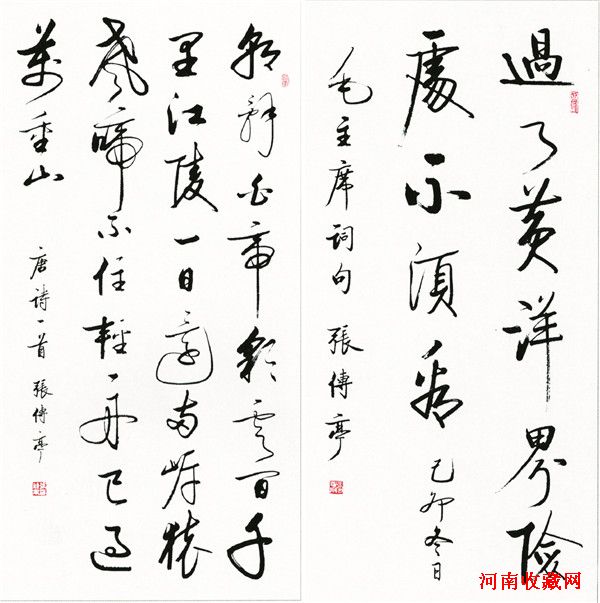 過了黃洋界險
處不須看 己卯冬日
毛主席詞句 張傳亭
朝辞白帝彩雲間千
里江陵一日還兩岸猿
聲啼不住輕舟已過
萬重山
唐詩一首 張傳亭
河南收藏网